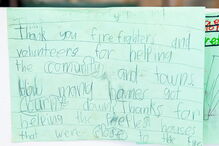 Thank you firefighters and
volunteers for helping
the community and town.
How many homes got
burnt down? Thanks for
helping the peoples houses
that were close to the fire